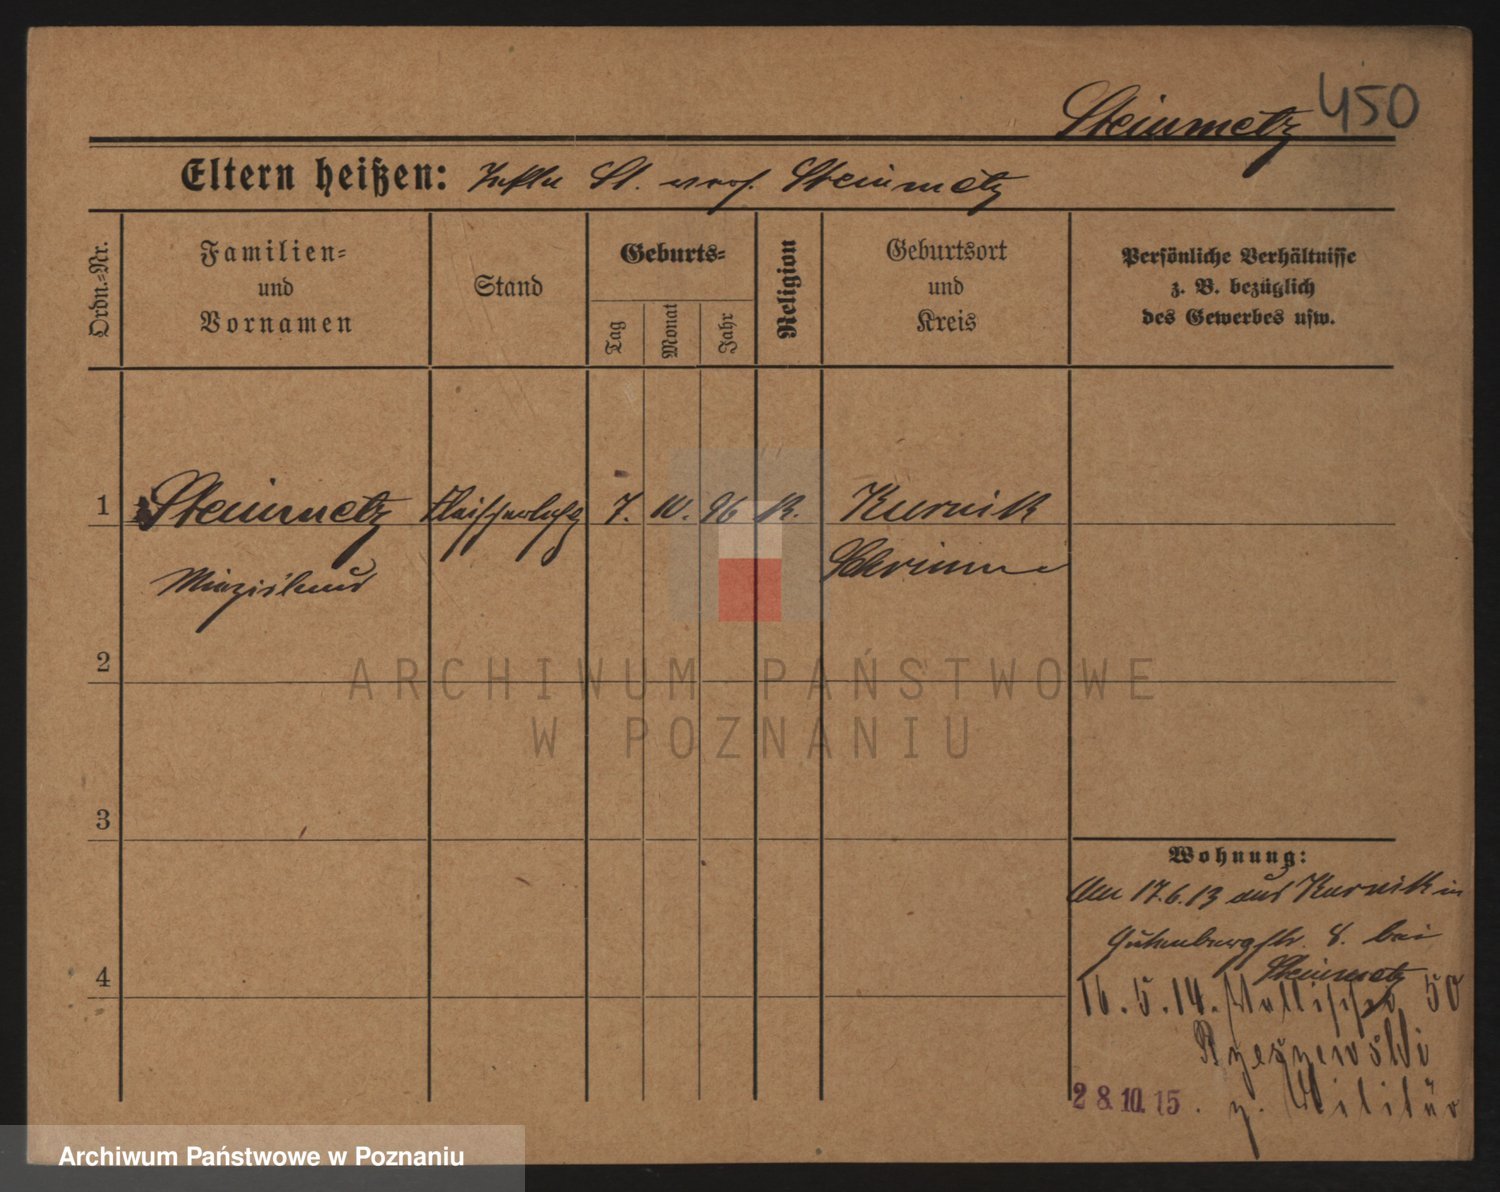 450
Steinmetz
Eltern heißen: St. Steinmetz
Ordn.-Nr.
Familien-
und
Vornamen
Stand
Geburts-
Tag
Monat
Jahr
Religion
Geburtsort
und
Kreis
Persönliche Verhältnisse
z. B. bezüglich
des Gewerbes usw.
1 Steinmetz 7. 10. 96 K. Kurnik
Schrimm
2
3
4
Wohnung:
Am 17.6.13 aus Kurnik in
Gutenbergstr. 8. bei
Steinmetz
16.5.14. 50
Rzeszewski
28.10.15. z. Militär
ARCHIWUM PAŃSTWOWE
W POZNANIU
Archiwum Państwowe w Poznaniu